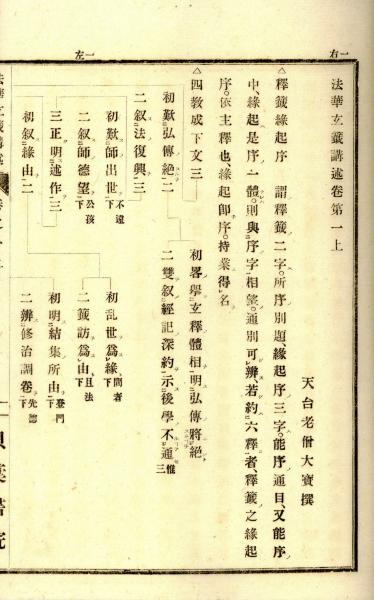 一右
一左
法華玄籤講述卷第一上
天台老僧大寶撰
△釋籤緣起序 謂釋籤二字。所序別題、緣起序三字。能序通目、又能序
中、緣起是序一體。則與序字相望。通別可辨、若約六釋者、釋籤之緣起
序。依主釋也、緣起即序。持業得名
△四教成下文三
初畧擧玄釋體相明弘傳將絕
初歎弘傳絕二
二雙叙經記深約示後學不通 惟三
二叙法復興三
初歎師出世 不遠下
初亂世爲緣 間者下
二叙師德望 公孩下
二籤訪爲由 且法下
三正明述作三
初明結集所由 登門下
初叙緣由二
二辨修治調卷 先諮下